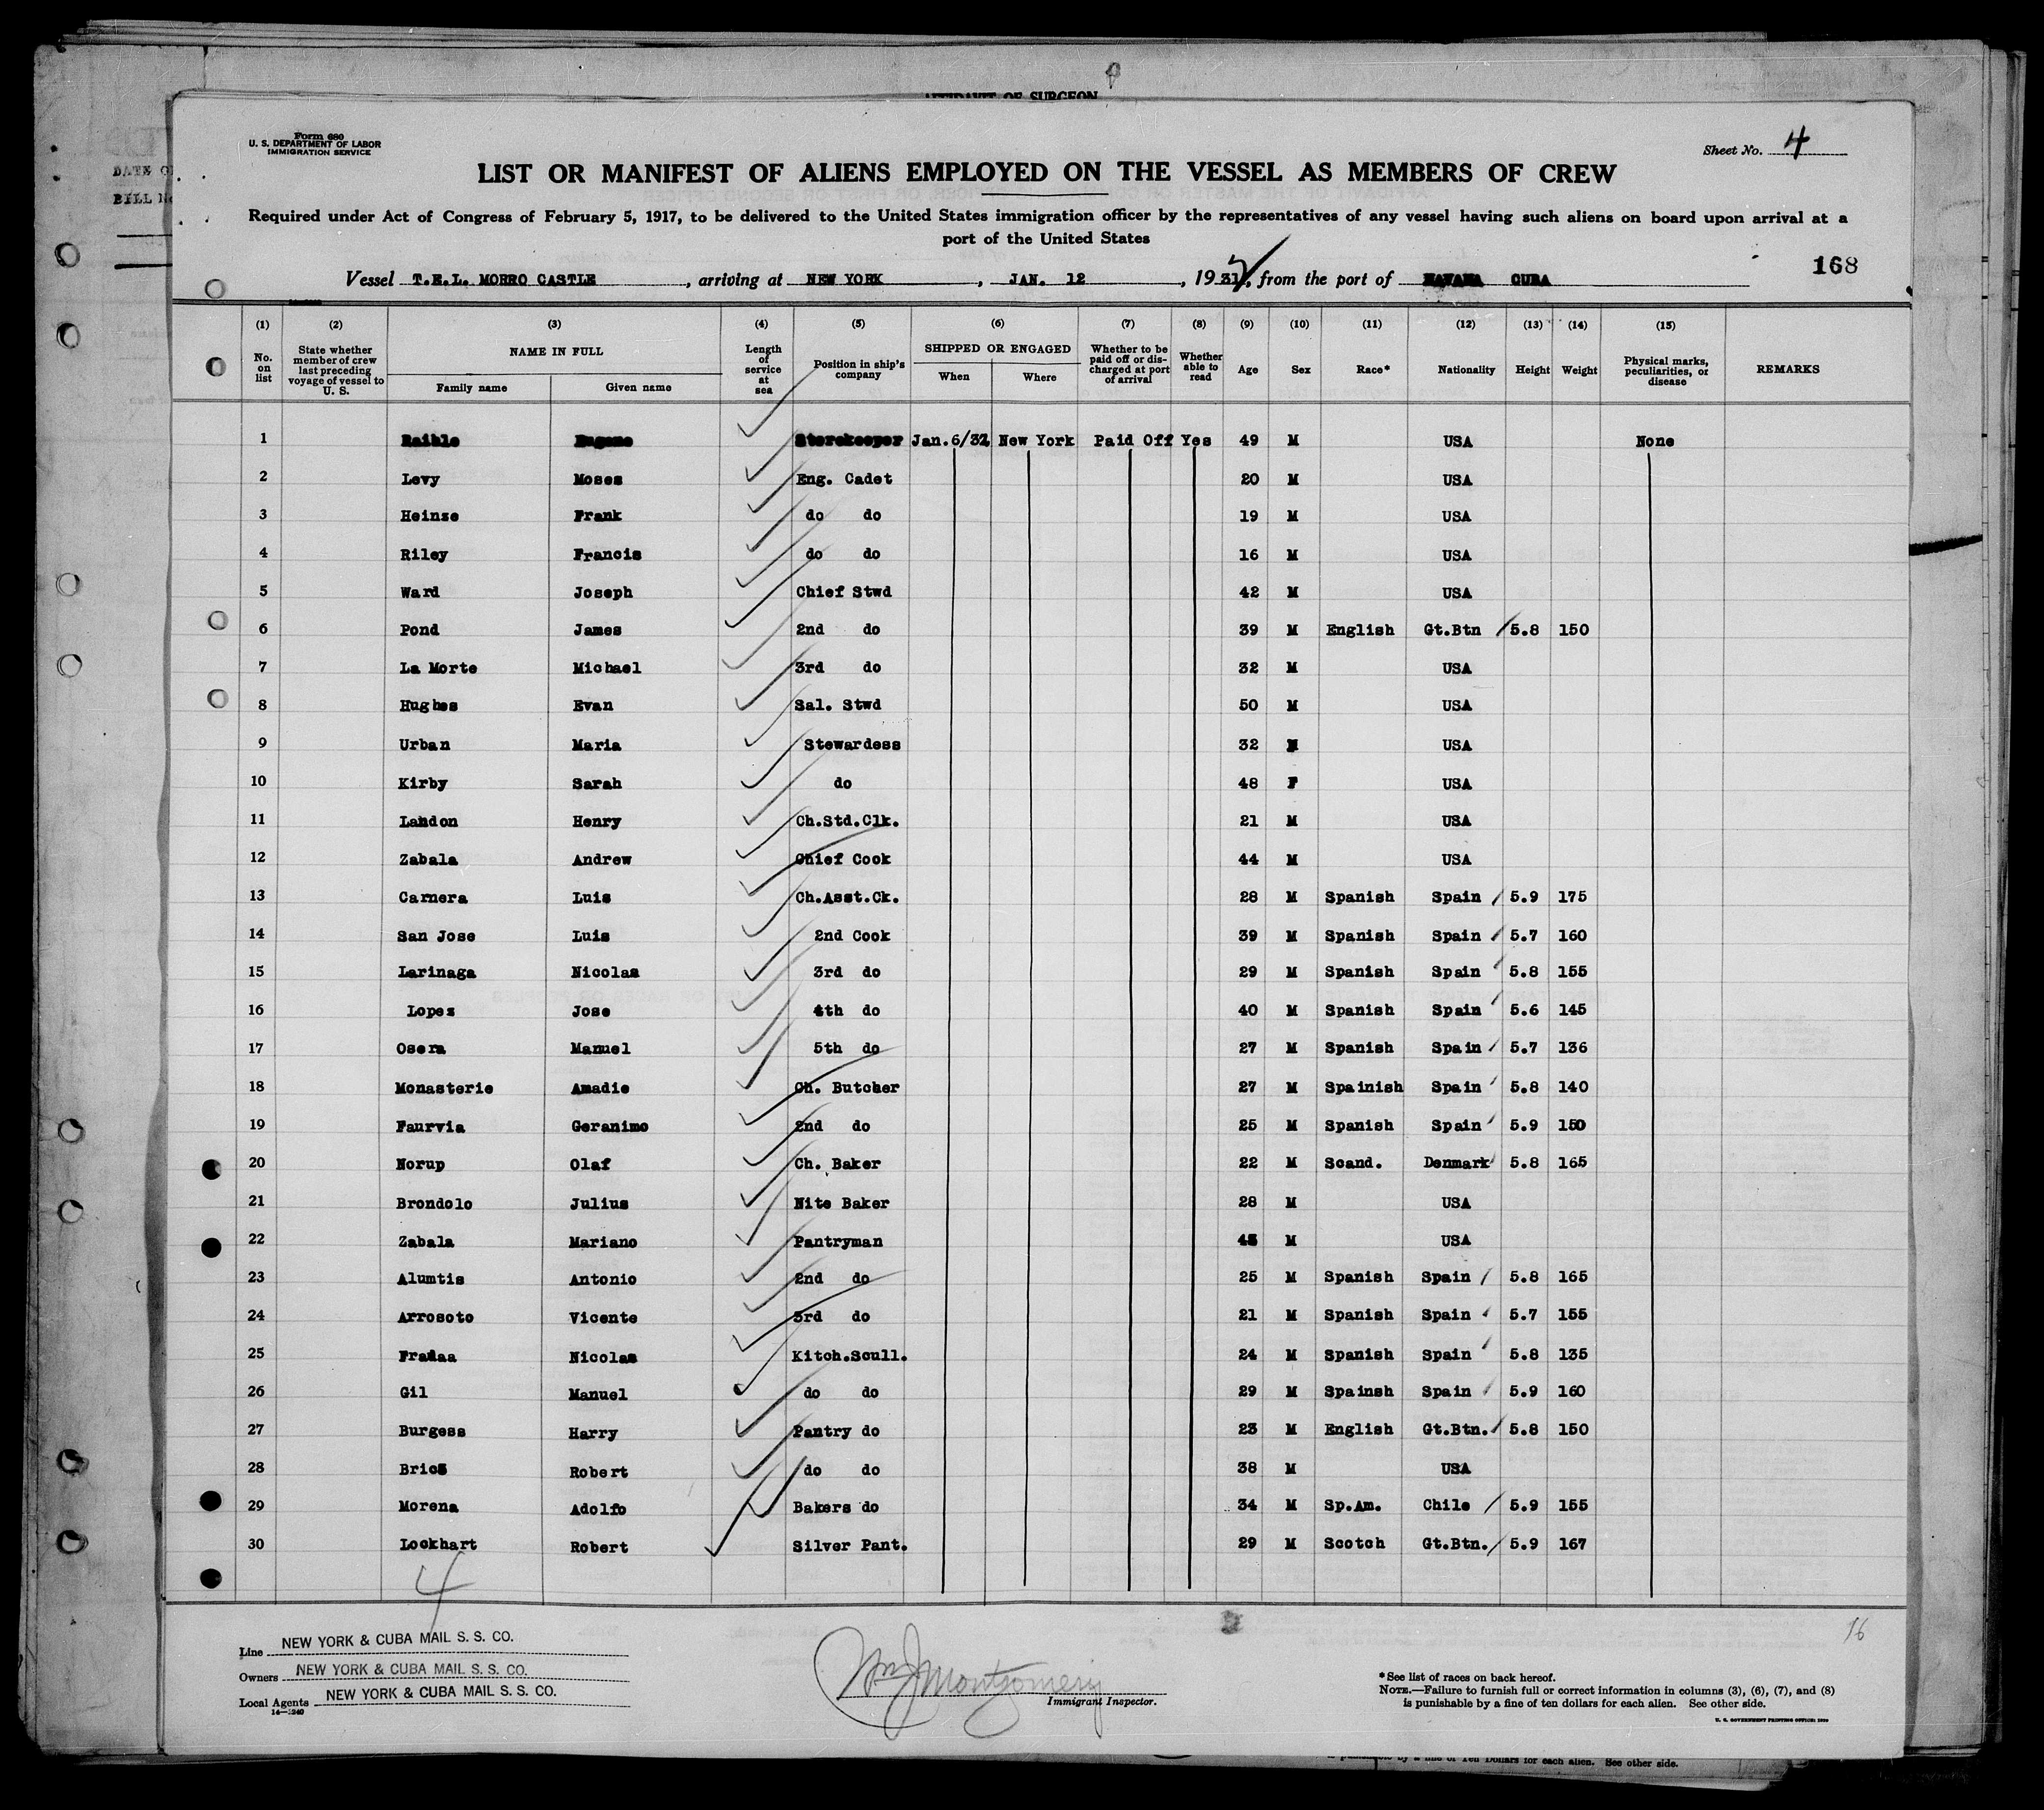 AFFIDAVIT OF SURGEON
Form 680
U. S. DEPARTMENT OF LABOR
IMMIGRATION SERVICE
Sheet No. 4
LIST OR MANIFEST OF ALIENS EMPLOYED ON THE VESSEL AS MEMBERS OF CREW
Required under Act of Congress of February 5, 1917, to be delivered to the United States immigration officer by the representatives of any vessel having such aliens on board upon arrival at a
port of the United States
168
Vessel T.E.L. MORRO CASTLE, arriving at NEW YORK, JAN. 12, 1931, from the port of HAVANA CUBA
(1) (2) (3) (4) (5) (6) (7) (8) (9) (10) (11) (12) (13) (14) (15)
No. on list
State whether member of crew last preceding voyage of vessel to U. S.
NAME IN FULL
Family name Given name
Length of service at sea
Position in ship's company
SHIPPED OR ENGAGED
When Where
Whether to be paid off or discharged at port of arrival
Whether able to read
Age Sex Race* Nationality Height Weight
Physical marks, peculiarities, or disease
REMARKS
1 Raible Eugene Storekeeper Jan.6/32 New York Paid Off Yes 49 M USA None
2 Levy Moses Eng. Cadet 20 M USA
3 Heinze Frank do do 19 M USA
4 Riley Francis do do 16 M USA
5 Ward Joseph Chief Stwd 42 M USA
6 Pond James 2nd do 39 M English Gt.Btn 5.8 150
7 La Morte Michael 3rd do 32 M USA
8 Hughes Evan Sal. Stwd 50 M USA
9 Urban Maria Stewardess 32 USA
10 Kirby Sarah do 48 F USA
11 Landon Henry Ch.Std.Clk. 21 M USA
12 Zabala Andrew Chief Cook 44 M USA
13 Carnera Luis Ch.Asst.Ck. 28 M Spanish Spain 5.9 175
14 San Jose Luis 2nd Cook 39 M Spanish Spain 5.7 160
15 Larinaga Nicolas 3rd do 29 M Spanish Spain 5.8 155
16 Lopez Jose 4th do 40 M Spanish Spain 5.6 145
17 Osera Manuel 5th do 27 M Spanish Spain 5.7 136
18 Monasterie Amadie Ch. Butcher 27 M Spainish Spain 5.8 140
19 Faurvia Geranimo 2nd do 25 M Spanish Spain 5.9 150
20 Norup Olaf Ch. Baker 22 M Scand. Denmark 5.8 165
21 Brondolo Julius Nite Baker 28 M USA
22 Zabala Mariano Pantryman M USA
23 Alumtis Antonio 2nd do 25 M Spanish Spain 5.8 165
24 Arrosoto Vicente 3rd do 21 M Spanish Spain 5.7 155
25 Fradaa Nicolas Kitch.Scull. 24 M Spanish Spain 5.8 135
26 Gil Manuel do do 29 M Spainsh Spain 5.9 160
27 Burgess Harry Pantry do 23 M English Gt.Btn. 5.8 150
28 Robert do do 38 M USA
29 Morena Adolfo Bakers do 34 M Sp.Am. Chile 5.9 155
30 Lockhart Robert Silver Pant. 29 M Scotch Gt.Btn. 5.9 167
4
16
Line NEW YORK & CUBA MAIL S. S. CO.
Owners NEW YORK & CUBA MAIL S. S. CO.
Local Agents NEW YORK & CUBA MAIL S. S. CO.
14—1240
Wm J Montgomery
Immigrant Inspector.
*See list of races on back hereof.
NOTE.—Failure to furnish full or correct information in columns (3), (6), (7), and (8)
is punishable by a fine of ten dollars for each alien. See other side.
U. S. GOVERNMENT PRINTING OFFICE:
is punishable by a fine of Ten Dollars for each alien. See other side.